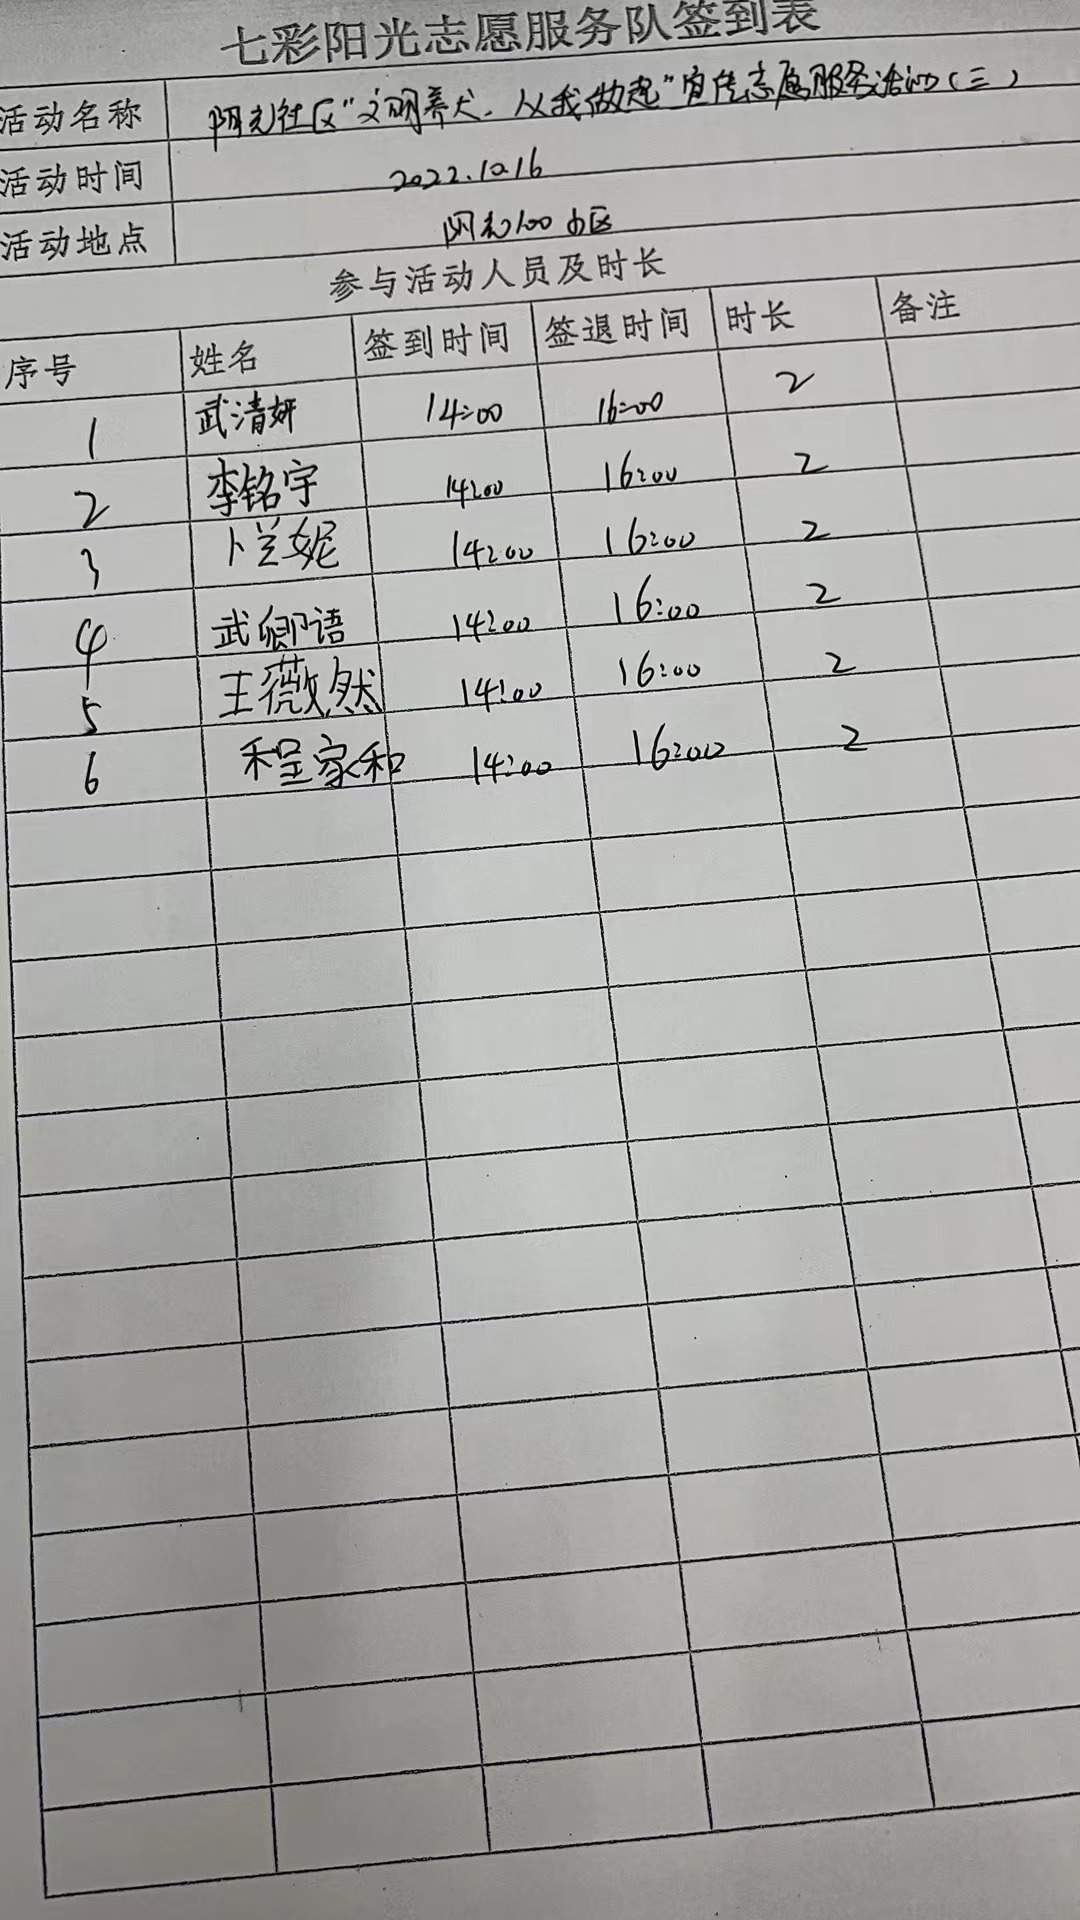 七彩阳光志愿服务队签到表
活动名称 阳光社区“文明养犬、从我做起”宣传志愿服务活动(三)
活动时间 2022.10.16
活动地点 阳光100小区
参与活动人员及时长
序号 姓名 签到时间 签退时间 时长 备注
1 武清妍 14:00 16:00 2
2 李铭宇 14:00 16:00 2
3 卜兰妮 14:00 16:00 2
4 武卿语 14:00 16:00 2
5 王薇然 14:00 16:00 2
6 程家和 14:00 16:00 2